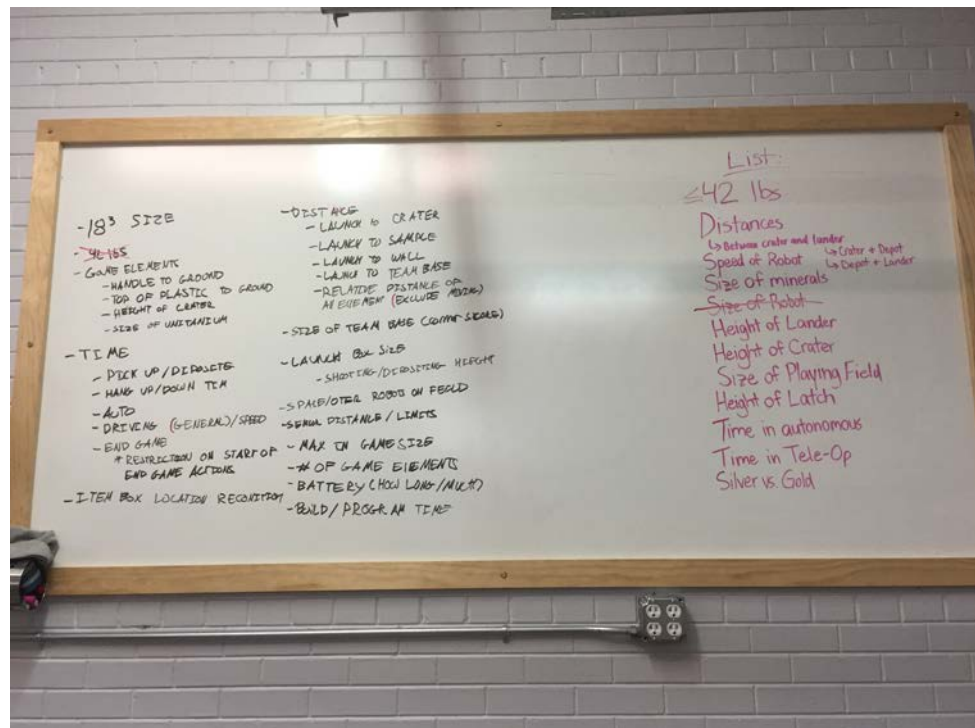 -18³ SIZE
-42 lbs
-GAME ELEMENTS
-HANDLE TO GROUND
-TOP OF PLASTIC TO GROUND
-HEIGHT OF CRATER
-SIZE OF UNITANIUM
-TIME
-PICK UP/DEPOSITE
-HANG UP/DOWN TIM
-AUTO
-DRIVING (GENERAL)/SPEED
-END GAME
* RESTRICTION ON START OF
END GAME ACTIONS
-ITEM BOX LOCATION RECONITION
-DISTANCE
-LAUNCH to CRATER
-LAUNCH TO SAMPLE
-LAUNCH TO WALL
-LAUNCH TO TEAM BASE
-RELATIVE DISTANCE OF
ELEMENT (EXCLUDE MOVING)
-SIZE OF TEAM BASE (corner
-LAUNCH BOX SIZE
-SHOOTING/DEPOSITING HIEGHT
-SPACE/OTER ROBOTS ON FEILD
DISTANCE/LIMITS
-MAX IN GAME SIZE
-# OF GAME ELEMENTS
-BATTERY (HOW LONG/MUCH)
-BUILD/PROGRAM TIME
List:
≤42 lbs
Distances
↳ Between crater and lander
↳ Crater + Depot
Speed of Robot
↳ Depot + Lander
Size of minerals
Size of Robot
Height of Lander
Height of Crater
Size of Playing Field
Height of Latch
Time in autonomous
Time in Tele-Op
Silver vs. Gold